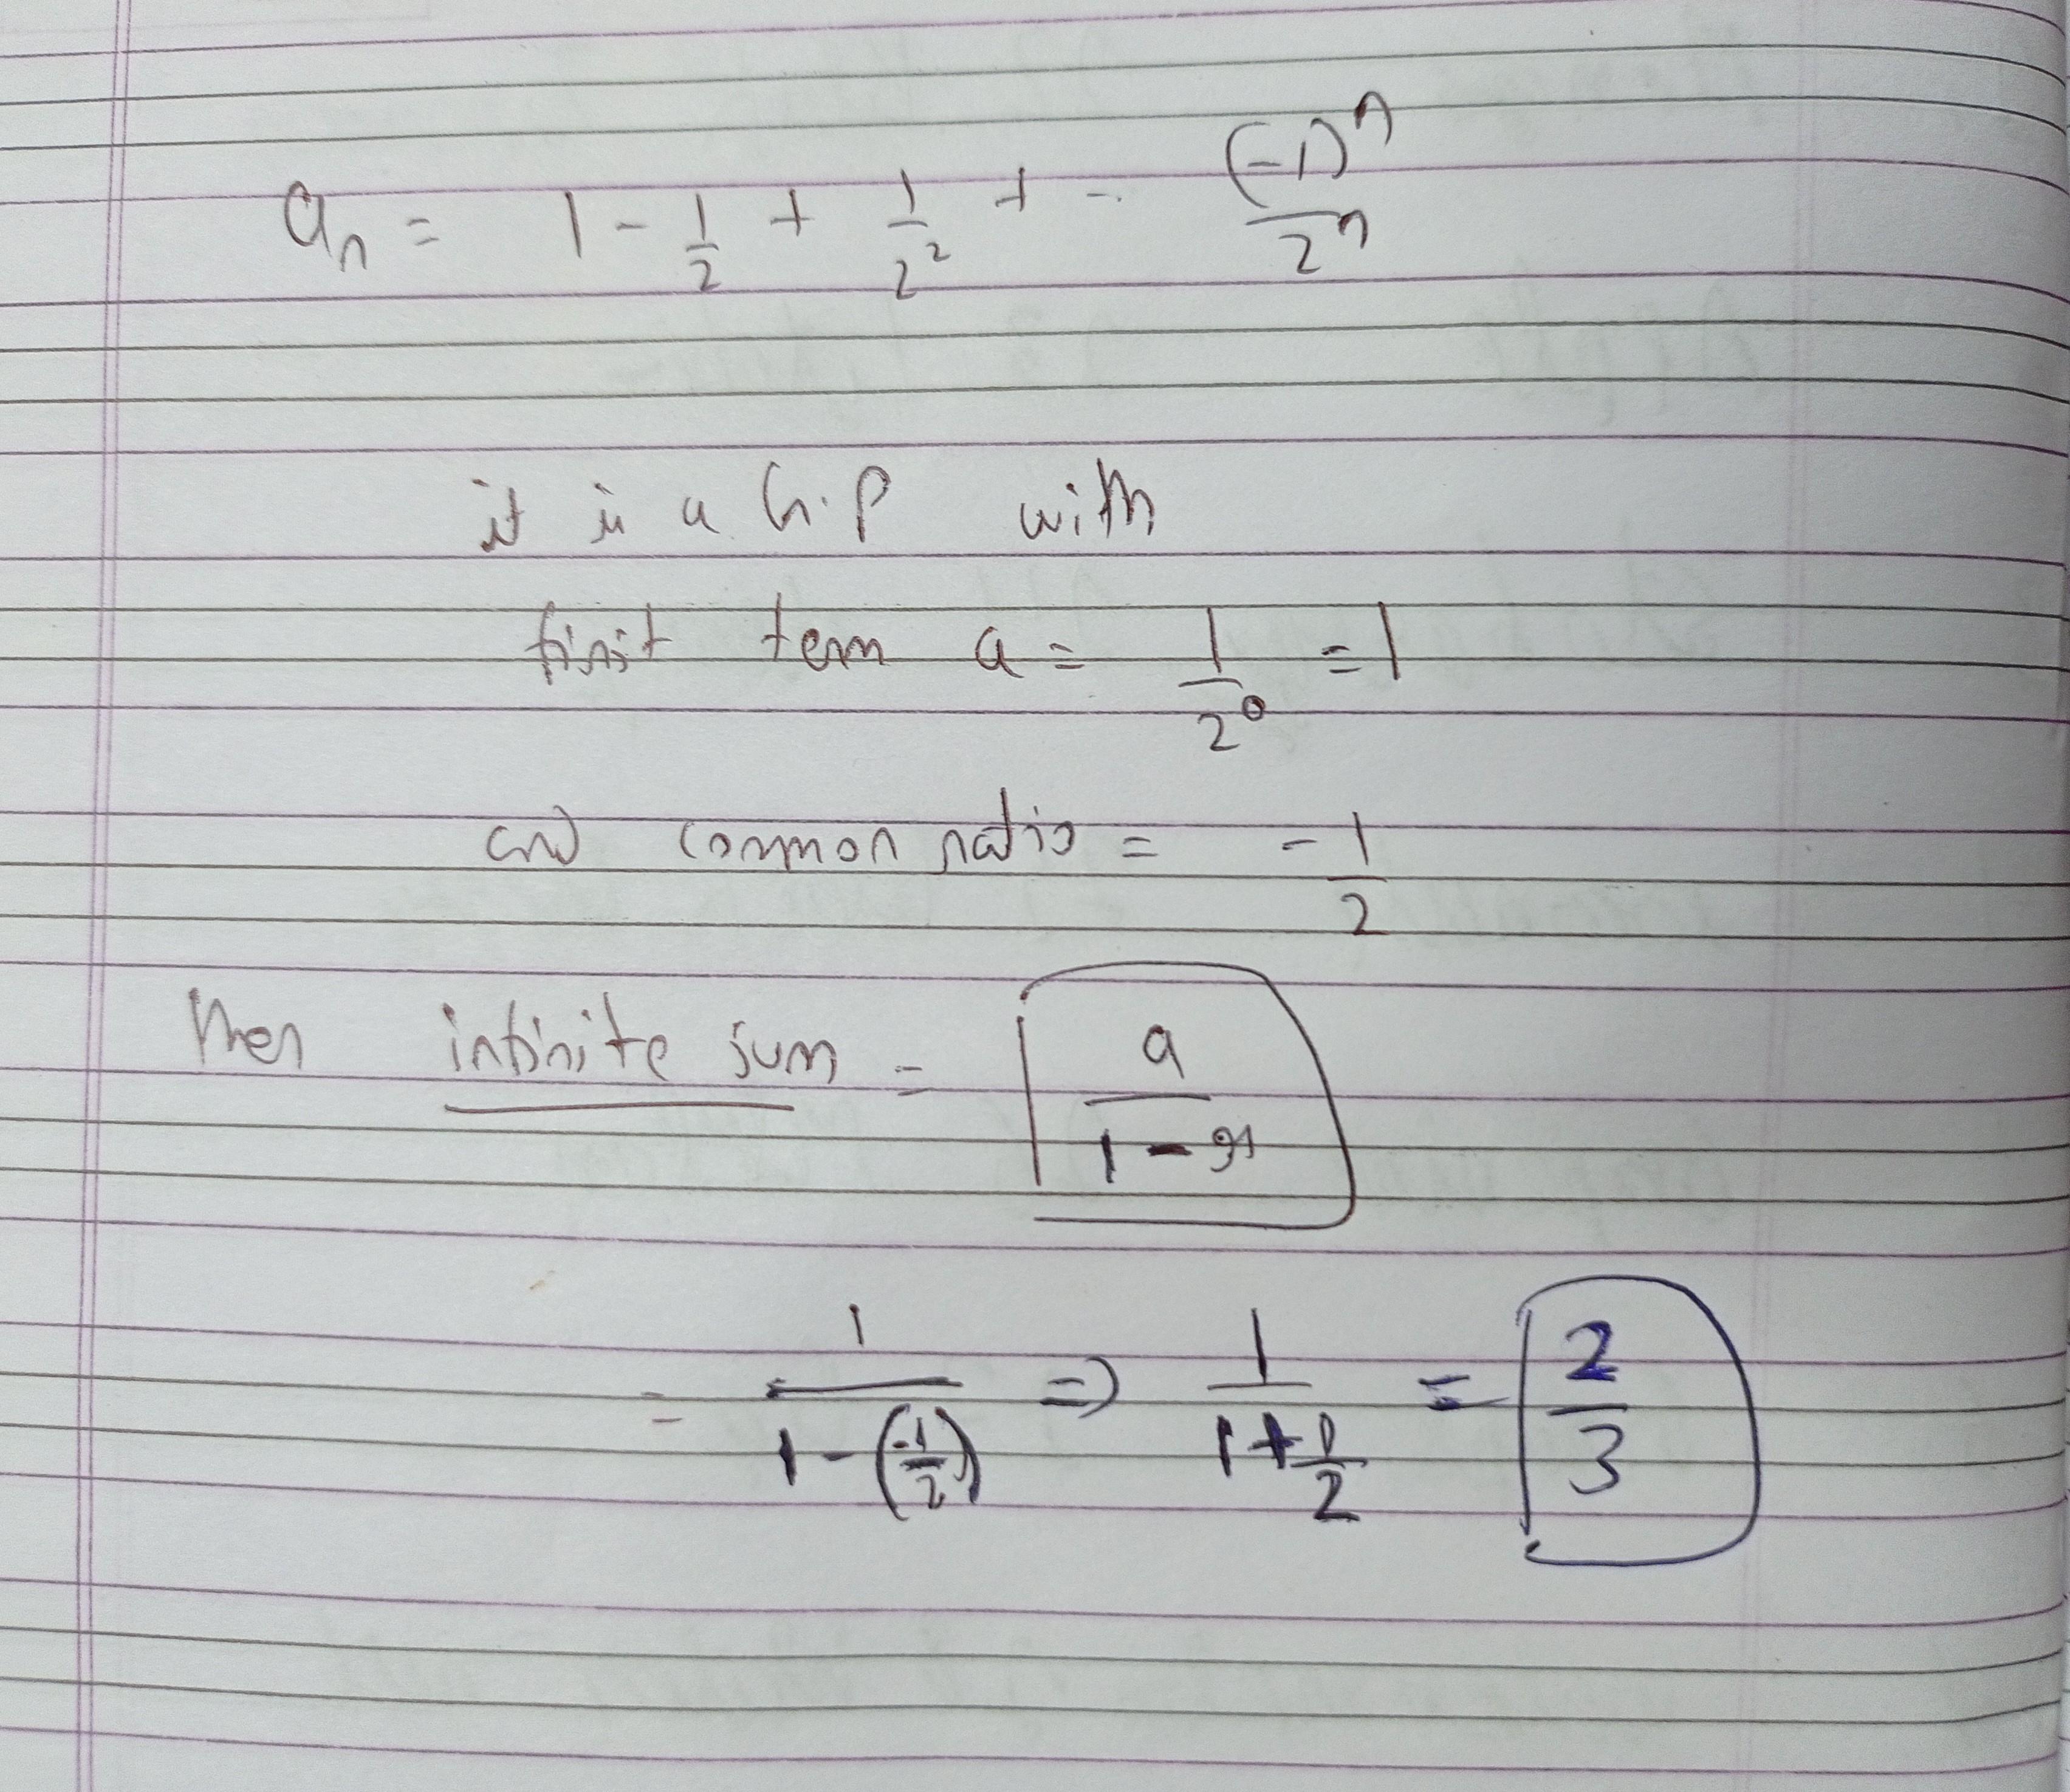 aₙ = 1 - 1/2 + 1/2² + - .. (-1)ⁿ/2ⁿ
it is a G.P with
first term a = 1/2⁰ = 1
and common ratio = -1/2
then infinite sum = a/(1-r)
= 1/(1-(-1/2)) ⇒ 1/(1+1/2) = 2/3